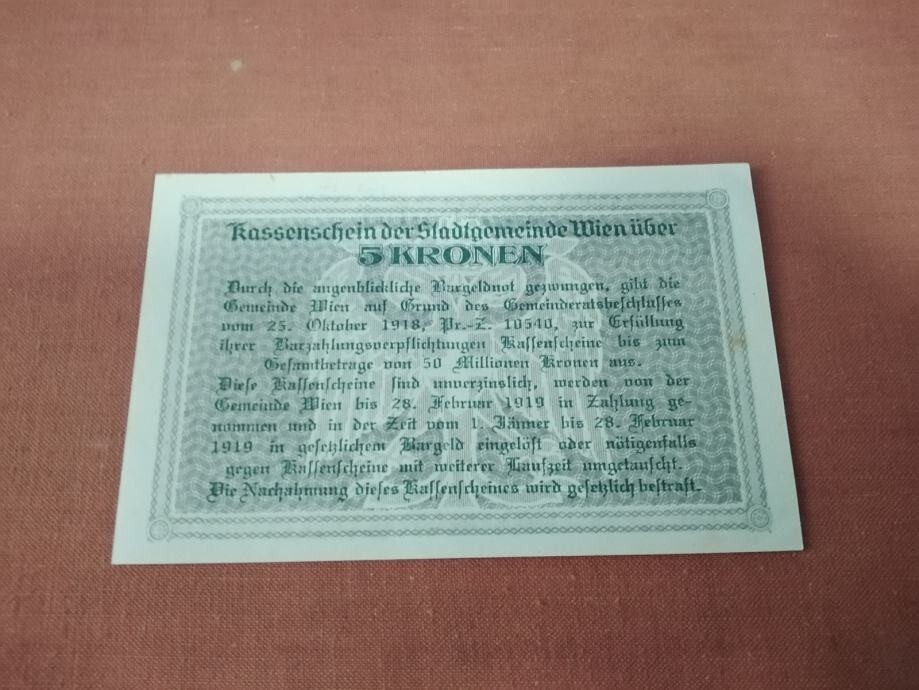 Kassenschein der Stadtgemeinde Wien über
5 KRONEN
Durch die augenblickliche Bargeldnot gezwungen, gibt die
Gemeinde Wien auf Grund des Gemeinderatsbeschlusses
vom 25. Oktober 1918, Pr.-Z. 10540, zur Erfüllung
ihrer Barzahlungsverpflichtungen Kassenscheine bis zum
Gesamtbetrage von 50 Millionen Kronen aus.
Diese Kassenscheine sind unverzinslich, werden von der
Gemeinde Wien bis 28. Februar 1919 in Zahlung ge-
nommen und in der Zeit vom 1. Jänner bis 28. Februar
1919 in gesetzlichem Bargeld eingelöst oder nötigenfalls
gegen Kassenscheine mit weiterer Laufzeit umgetauscht.
Die Nachahmung dieses Kassenscheines wird gesetzlich bestraft.